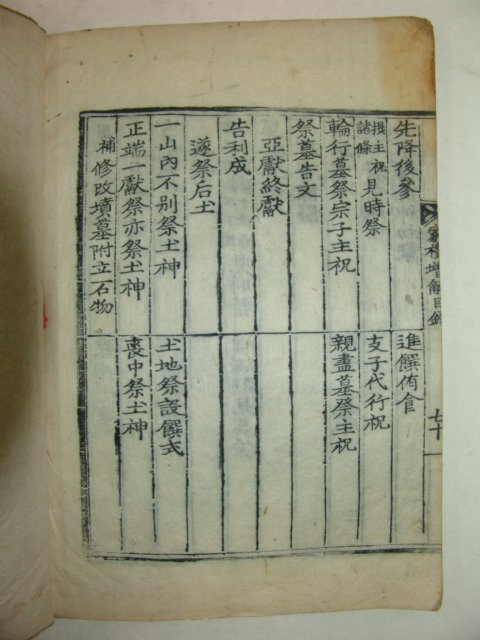 家禮增解目錄 七十
先降後參 進饌侑食
撰主祝諸條見時祭 支子代行祝
輪行墓祭宗子主祝 親盡墓祭主祝
祭墓告文
亞獻終獻
告利成
遂祭后土
一山內不別祭土神 土地祭設饌式
正端一獻祭亦祭土神 喪中祭土神
補修改墳墓附立石物